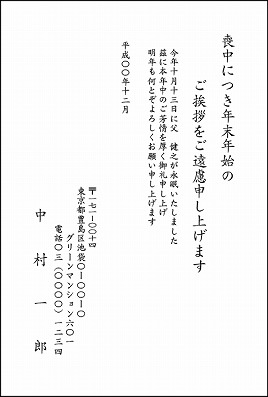 喪中につき年末年始の
ご挨拶をご遠慮申し上げます
今年十月十三日に父　健之が永眠いたしました
茲に本年中のご芳情を厚く御礼申し上げ
明年も何とぞよろしくお願い申し上げます
平成〇〇年十二月
〒一七一-〇〇一四
東京都豊島区池袋〇-〇〇-〇
グリーンマンション六〇一
電話〇三（〇〇〇〇）一二三四
中村一郎